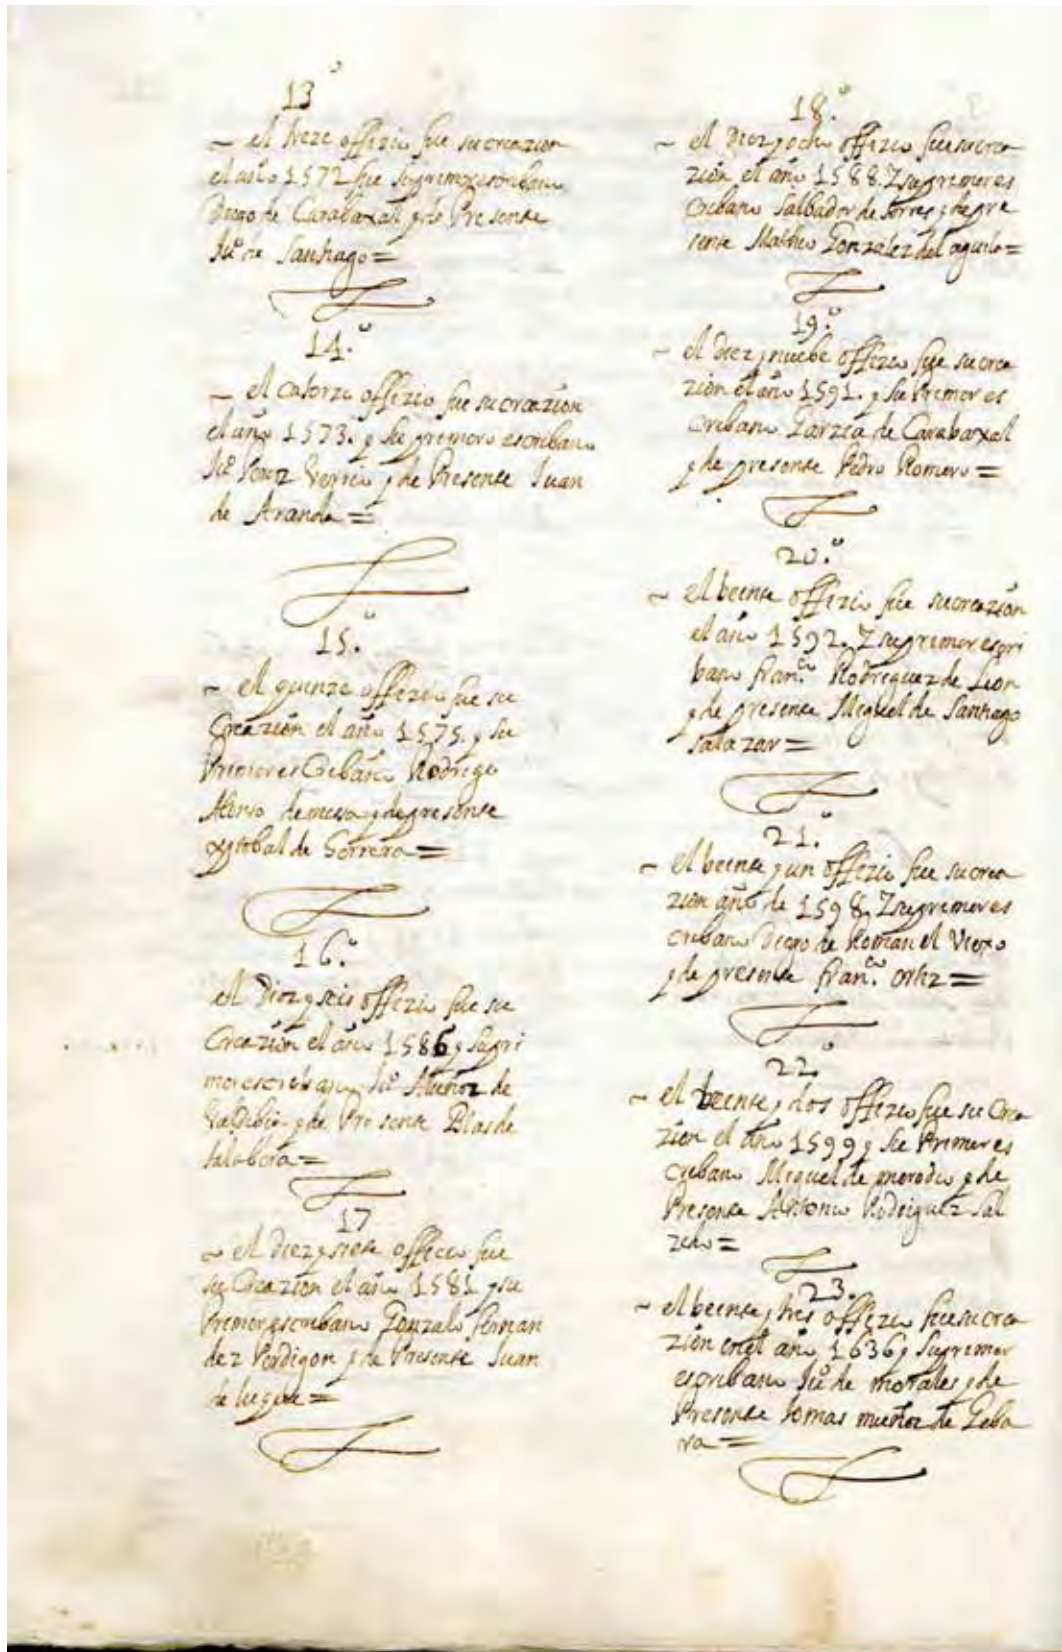 13º
~ el treze offizio fue su creazion
el año 1572 fue su primer escribano
Diego de Carabaxal y de Presente
Juº de Santiago =
14.º
~ el catorze offizio fue su creazion
el año 1573. y su primero escribano
Juº Perez y de Presente Juan
de Aranda =
15.º
~ el quinze offizio fue su
Creazion el año 1575. y su
Primer escribano Rodrigo
Alonso de mesa y de presente
xptobal de =
16.º
el Diez y seis offizio fue su
Creazion el año 1586 y su pri
mer escribano Juº Muñoz de
y de Presente Blas de
talabera =
17
~ el diez y siete officio fue
su Creazion el año 1581 y su
Primer escribano Gonzalo fernan
dez Perdigon y de Presente Juan
de =
18.º
~ el Diez y ocho offizio fue su crea
zion el año 1588. Y su primer es
cribano Salbador de torres y de pre
sente Matheo Gonzalez del aguila =
19.º
~ el diez y nuebe offizio fue su crea
zion el año 1591. y su Primer es
cribano Garzia de Carabaxal
y de presente Pedro Romero =
20.º
~ el beente offizio fue su creazion
el año 1592. Y su primer escri
bano franco. Rodriguez de Leon
y de presente Miguel de Santiago
salazar =
21.º
~ el beente y un offizio fue su crea
zion año de 1598. Y su primer es
cribano Diego de Roman el Viexo
y de presente franco. ortiz =
22º
~ el beente y dos offizio fue su Crea
zion el año 1599 y su Primer es
cribano Miguel de y de
Presente Antonio Rodriguez Sal
zedo =
23.
~ el beente y tres offizio fue su crea
zion en el año 1636 y su primer
escribano Juº de morales y de
Presente tomas muñoz de Geba
ra =